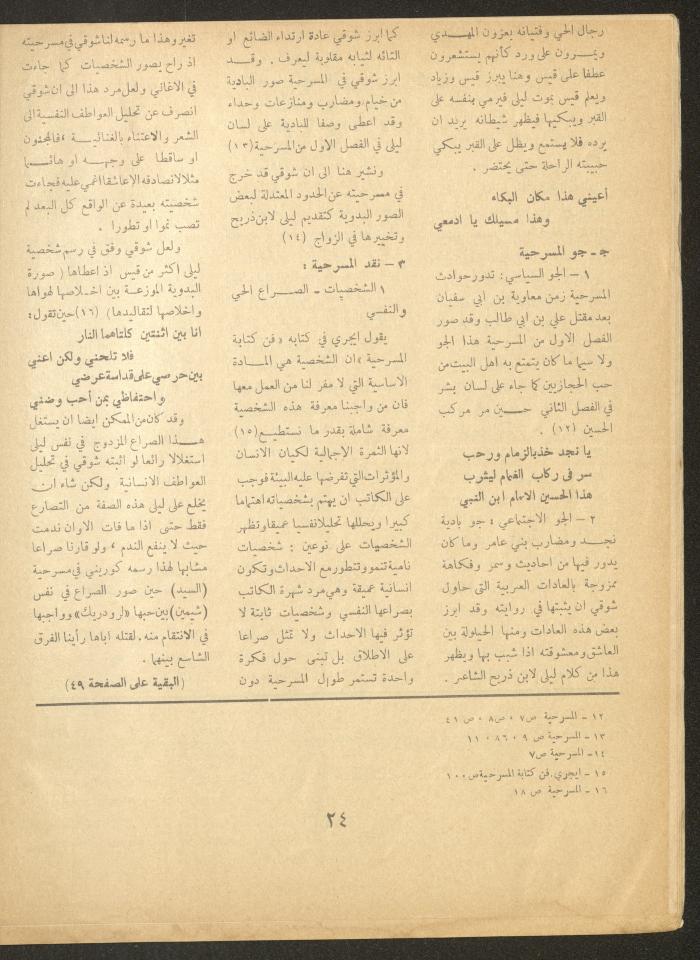 رجال الحي وفتياته يعزون المهدي
ويمرون على ورد كأنهم يستشعرون
عطفا على قيس وهنا يبرز قيس وزياد
ويعلم قيس بموت ليلى فيرمي بنفسه على
القبر ويبكيها فيظهر شيطانه يريد ان
يرده فلا يستمع ويظل على القبر يبكي
حبيبته الراحلة حتى يحتضر .
أعيني هذا مكان البكاء
وهذا مسيلك يا ادمعي
جـ ـ جو المسرحية
١ – الجو السياسي: تدور حوادث
المسرحية زمن معاوية بن ابي سفيان
بعد مقتل علي بن ابي طالب وقد صور
الفصل الاول من المسرحية هذا الجو
ولا سيما ما كان يتمتع به اهل البيت من
حب الحجازيين كما جاء على لسان بشر
في الفصل الثاني حــين مر مركب
الحسين (١٢) .
يا نجد خذ بالزمام ورحب
سر في ركاب الغمام ليثرب
هذا الحسين الامام ابن النبي
٢ – الجو الاجتماعي : جو بادية
نجــد ومضارب بني عامر وما كان
يدور فيها من احاديث وسمر وفكاهة
ممزوجة بالعادات العربية التي حاول
شوقي ان يثبتها في روايته وقد ابرز
بعض هذه العادات ومنها الحيلولة بين
العاشق ومعشوقته اذا شبب بها ويظهر
هذا من كلام ليلى لابن ذريح الشاعر .
كما ابرز شوقي عادة ارتداء الضائع او
التائه لثيابه مقلوبة ليعرف . وقــد
ابرز شوقي في المسرحية صور البادية
من خيام ومضارب ومنازعات وحداء
وقد اعطى وصفا للبادية على لسان
ليلى في الفصل الاول من المسرحية (١٣)
ونشير هنا الى ان شوقي قد خرج
في مسرحيته عن الحدود المعتدلة لبعض
الصور البدوية كتقديم ليلى لابن ذريح
وتخييرها في الزواج (١٤)
٣ – نقد المسرحية :
١ الشخصيات ـ الصــراع الحي
والنفسي
يقول ايجري في كتابه «فن كتابة
المسرحية» ان الشخصية هي المــادة
الاساسية التي لا مفر لنا من العمل معها
فان من واجبنا معرفة هذه الشخصية
معرفة شاملة بقدر ما نستطيع (١٥)
لانها الثمرة الاجمالية لكيان الانسان
والمؤثرات التي تفرضها عليه البيئة فوجب
على الكاتب ان يهتم بشخصياته اهتماما
كبيرا ويحللها تحليلا نفسيا عميقا وتظهر
الشخصيات على نوعين : شخصيات
نامية تنمو وتتطور مع الاحداث وتكون
انسانية عميقة وهي مرد شهرة الكاتب
بصراعها النفسي وشخصيات ثابتة لا
تؤثر فيها الاحداث ولا تمثل صراعا
على الاطلاق بل تبنى حول فكرة
واحدة تستمر طوال المسرحية دون
تغير وهذا ما رسمه لنا شوقي في مسرحيته
اذ راح يصور الشخصيات كما جاءت
في الاغاني ولعل مرد هذا الى ان شوقي
انصرف عن تحليل العواطف النفسية الى
الشعر والاعتناء بالغنائيــة «فالمجنون
او ساقطا على وجهــه او هائــما
مثلا لا نصادفه الا عاشقا اغمي عليه فجاءت
شخصيته بعيدة عن الواقع كل البعد لم
تصب نموا او تطورا .
ولعل شوقي وفق في رسم شخصية
ليلى اكثر من قيس اذ اعطاها (صورة
البدوية الموزعــة بين اخـلاصها لهواها
واخلاصها لتقاليدها) (١٦) حين تقول :
انا بين اثنتين كلتاهما النار
فلا تلحني ولكن اعني
بين حرصي على قداسة عرضي
واحتفاظي بمن أحب وضني
وقد كان من الممكن ايضا ان يستغل
هــذا الصراع المزدوج في نفس ليلى
استغلالا رائعا لو اثبته شوقي في تحليل
العواطف الانسانية ولكن شاء ان
يخلع على ليلى هذه الصفة من التصارع
فقط حتى اذا ما فات الاوان ندمت
حيث لا ينفع الندم ، ولو قارنا صراعا
مشابها لهذا رسمه كوريني في مسرحية
(السيد) حين صور الصراع في نفس
(شيمين) بين حبها «لرودريك» وواجبها
في الانتقام منه لقتله اباها رأينا الفرق
الشاسع بينهما .
(البقية على الصفحة ٤٩)
١٢ – المسرحية ص ٧ ، ص ٨ ، ص ٤١
١٣ – المسرحية ص ٩ ، ٨٦ ، ١١
١٤ – المسرحية ص ٧
١٥ – ايجري. فن كتابة المسرحية ص ١٠٠
١٦ – المسرحية ص ١٨
٢٤